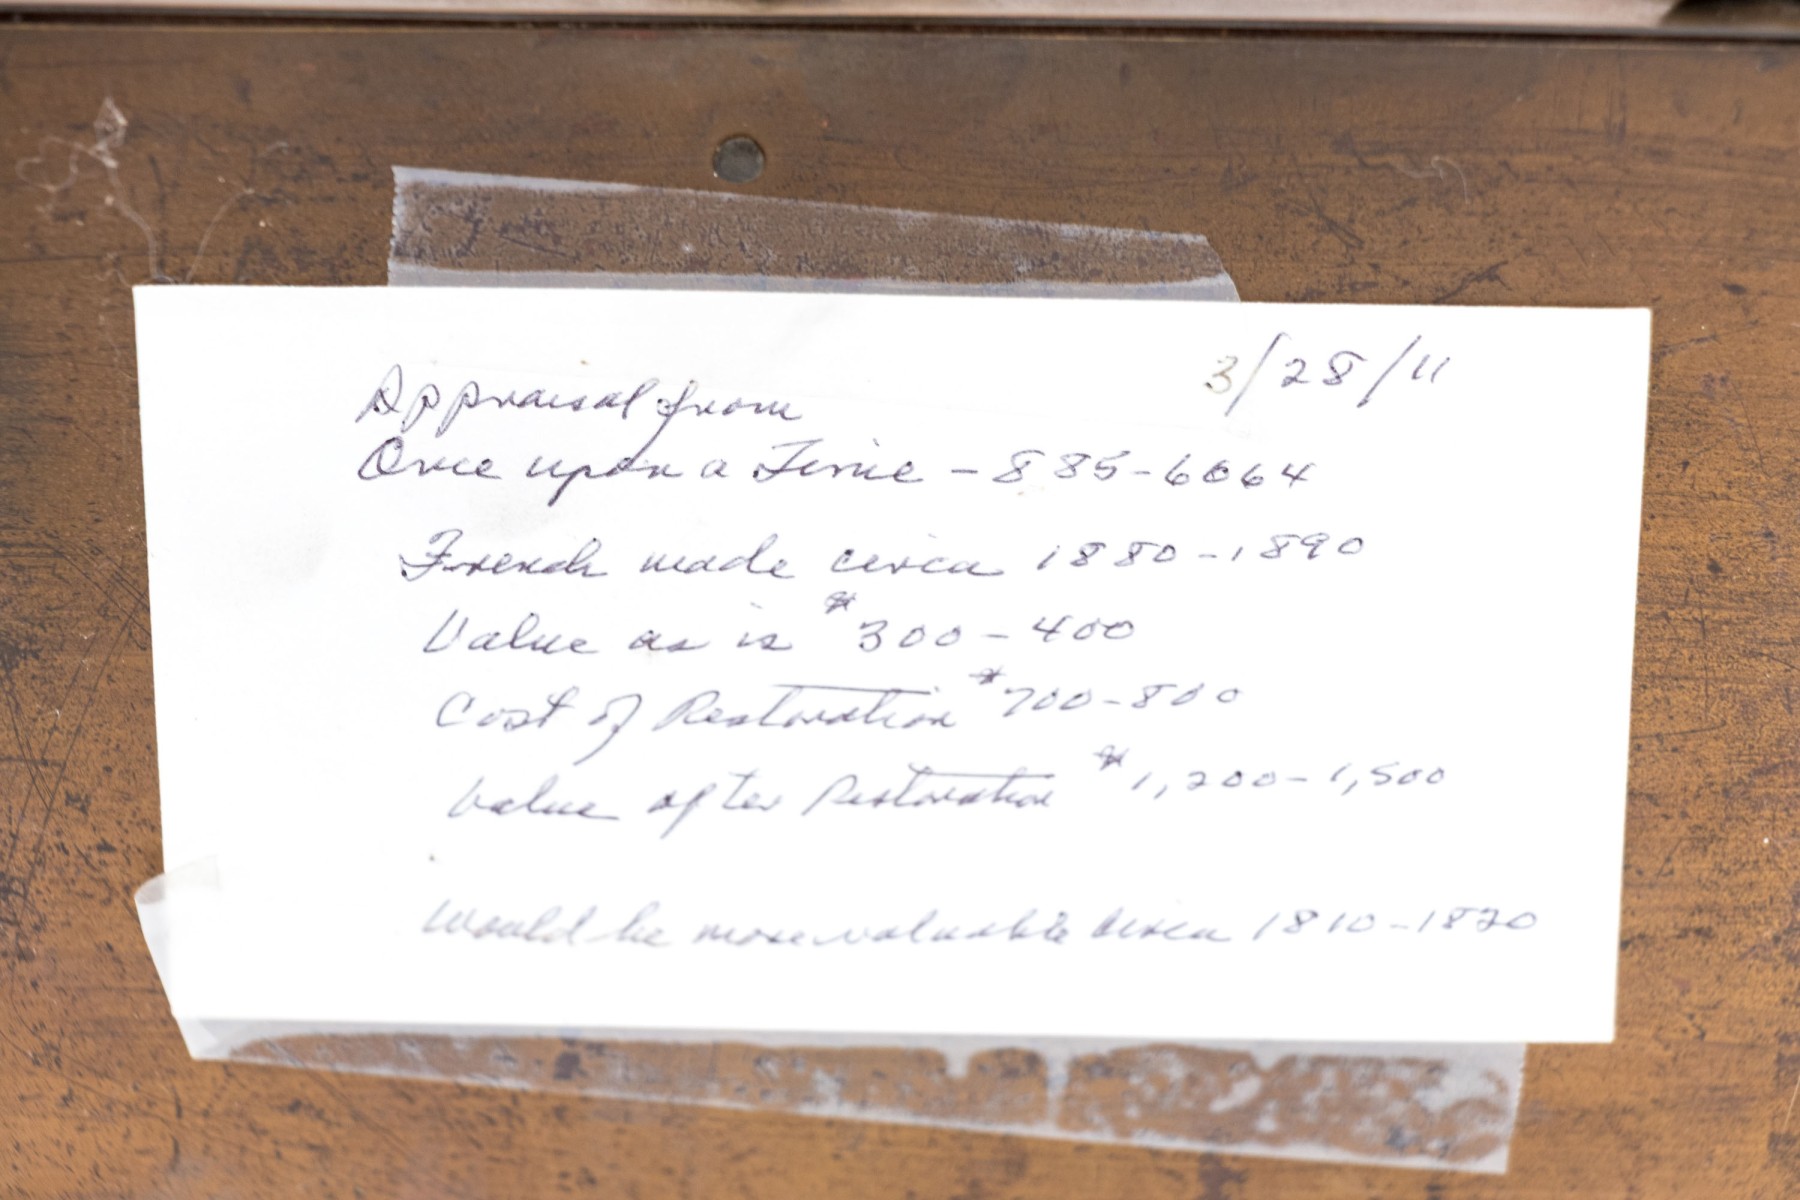 3/28/11
Appraisal from
Once upon a Time - 885-6664
French made circa 1880-1890
Value as is $300-400
Cost of Restoration $700-800
Value after Restoration $1,200-1,500
Would be more valuable circa 1810-1820